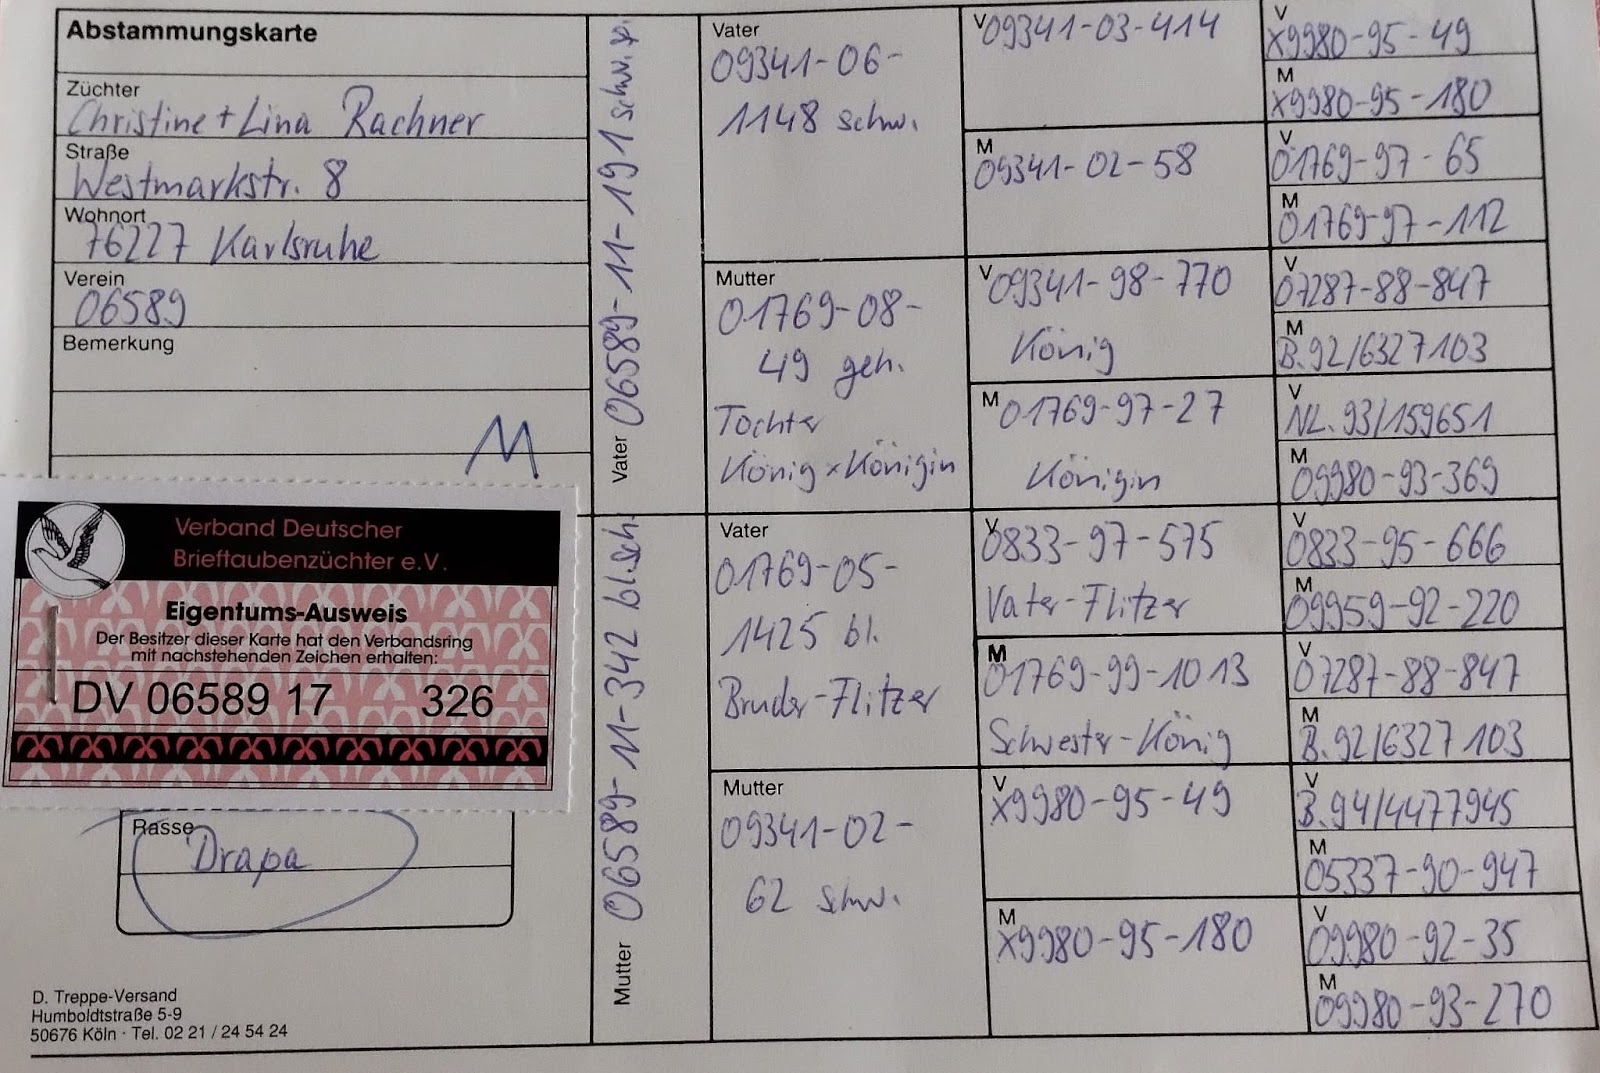 Abstammungskarte
Züchter
Christine + Lina Rachner
Straße
Westmarkstr. 8
Wohnort
76227 Karlsruhe
Verein
06589
Bemerkung
M
Verband Deutscher
Brieftaubenzüchter e.V.
Eigentums-Ausweis
Der Besitzer dieser Karte hat den Verbandsring
mit nachstehenden Zeichen erhalten:
DV 06589 17 326
Rasse
Drapa
D. Treppe-Versand
Humboldtstraße 5-9
50676 Köln · Tel. 02 21 / 24 54 24
Vater 06589-11-191 schw. sp.
Mutter 06589-11-342 bl.sch.
Vater
09341-06-
1148 schw.
Mutter
01769-08-
49 geh.
Tochter
König x Königin
Vater
01769-05-
1425 bl.
Bruder-Flitzer
Mutter
09341-02-
62 schw.
V 09341-03-414
M
09341-02-58
V 09341-98-770
König
M 01769-97-27
Königin
V
0833-97-575
Vater-Flitzer
M
01769-99-1013
Schwester-König
V
X9980-95-49
M
X9980-95-180
V
X9980-95-49
M
X9980-95-180
V
01769-97-65
M
01769-97-112
V
07287-88-847
M
B.92/6327103
V
NL.93/159651
M
09980-93-369
V
0833-95-666
M
09959-92-220
V
07287-88-847
M
B.92/6327103
V
B.94/4477945
M
05337-90-947
V
09980-92-35
M
09980-93-270